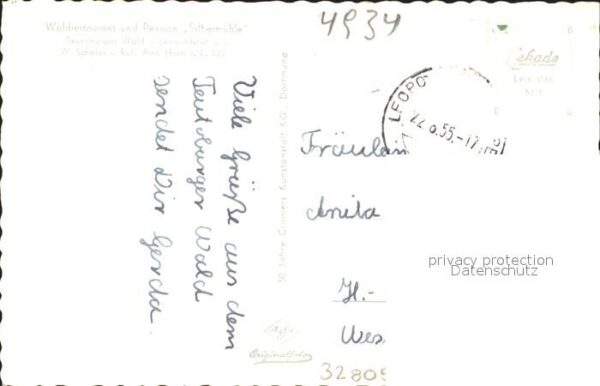 Waldrestaurant und Pension „Silbermühle"
Teutoburger Wald
W. Schäfer - Ruf: Amt Horn
4934
Viele Grüße aus dem
Teutoburger Wald
sendet Dir Gerda.
50 Jahre Cramers Kunstanstalt KG., Dortmund
Agfa
Originalfoto
Cekade
LEOPO
22.6.55.-17
Fräulein
Anita
H.-
Wes
privacy protection
Datenschutz
32809